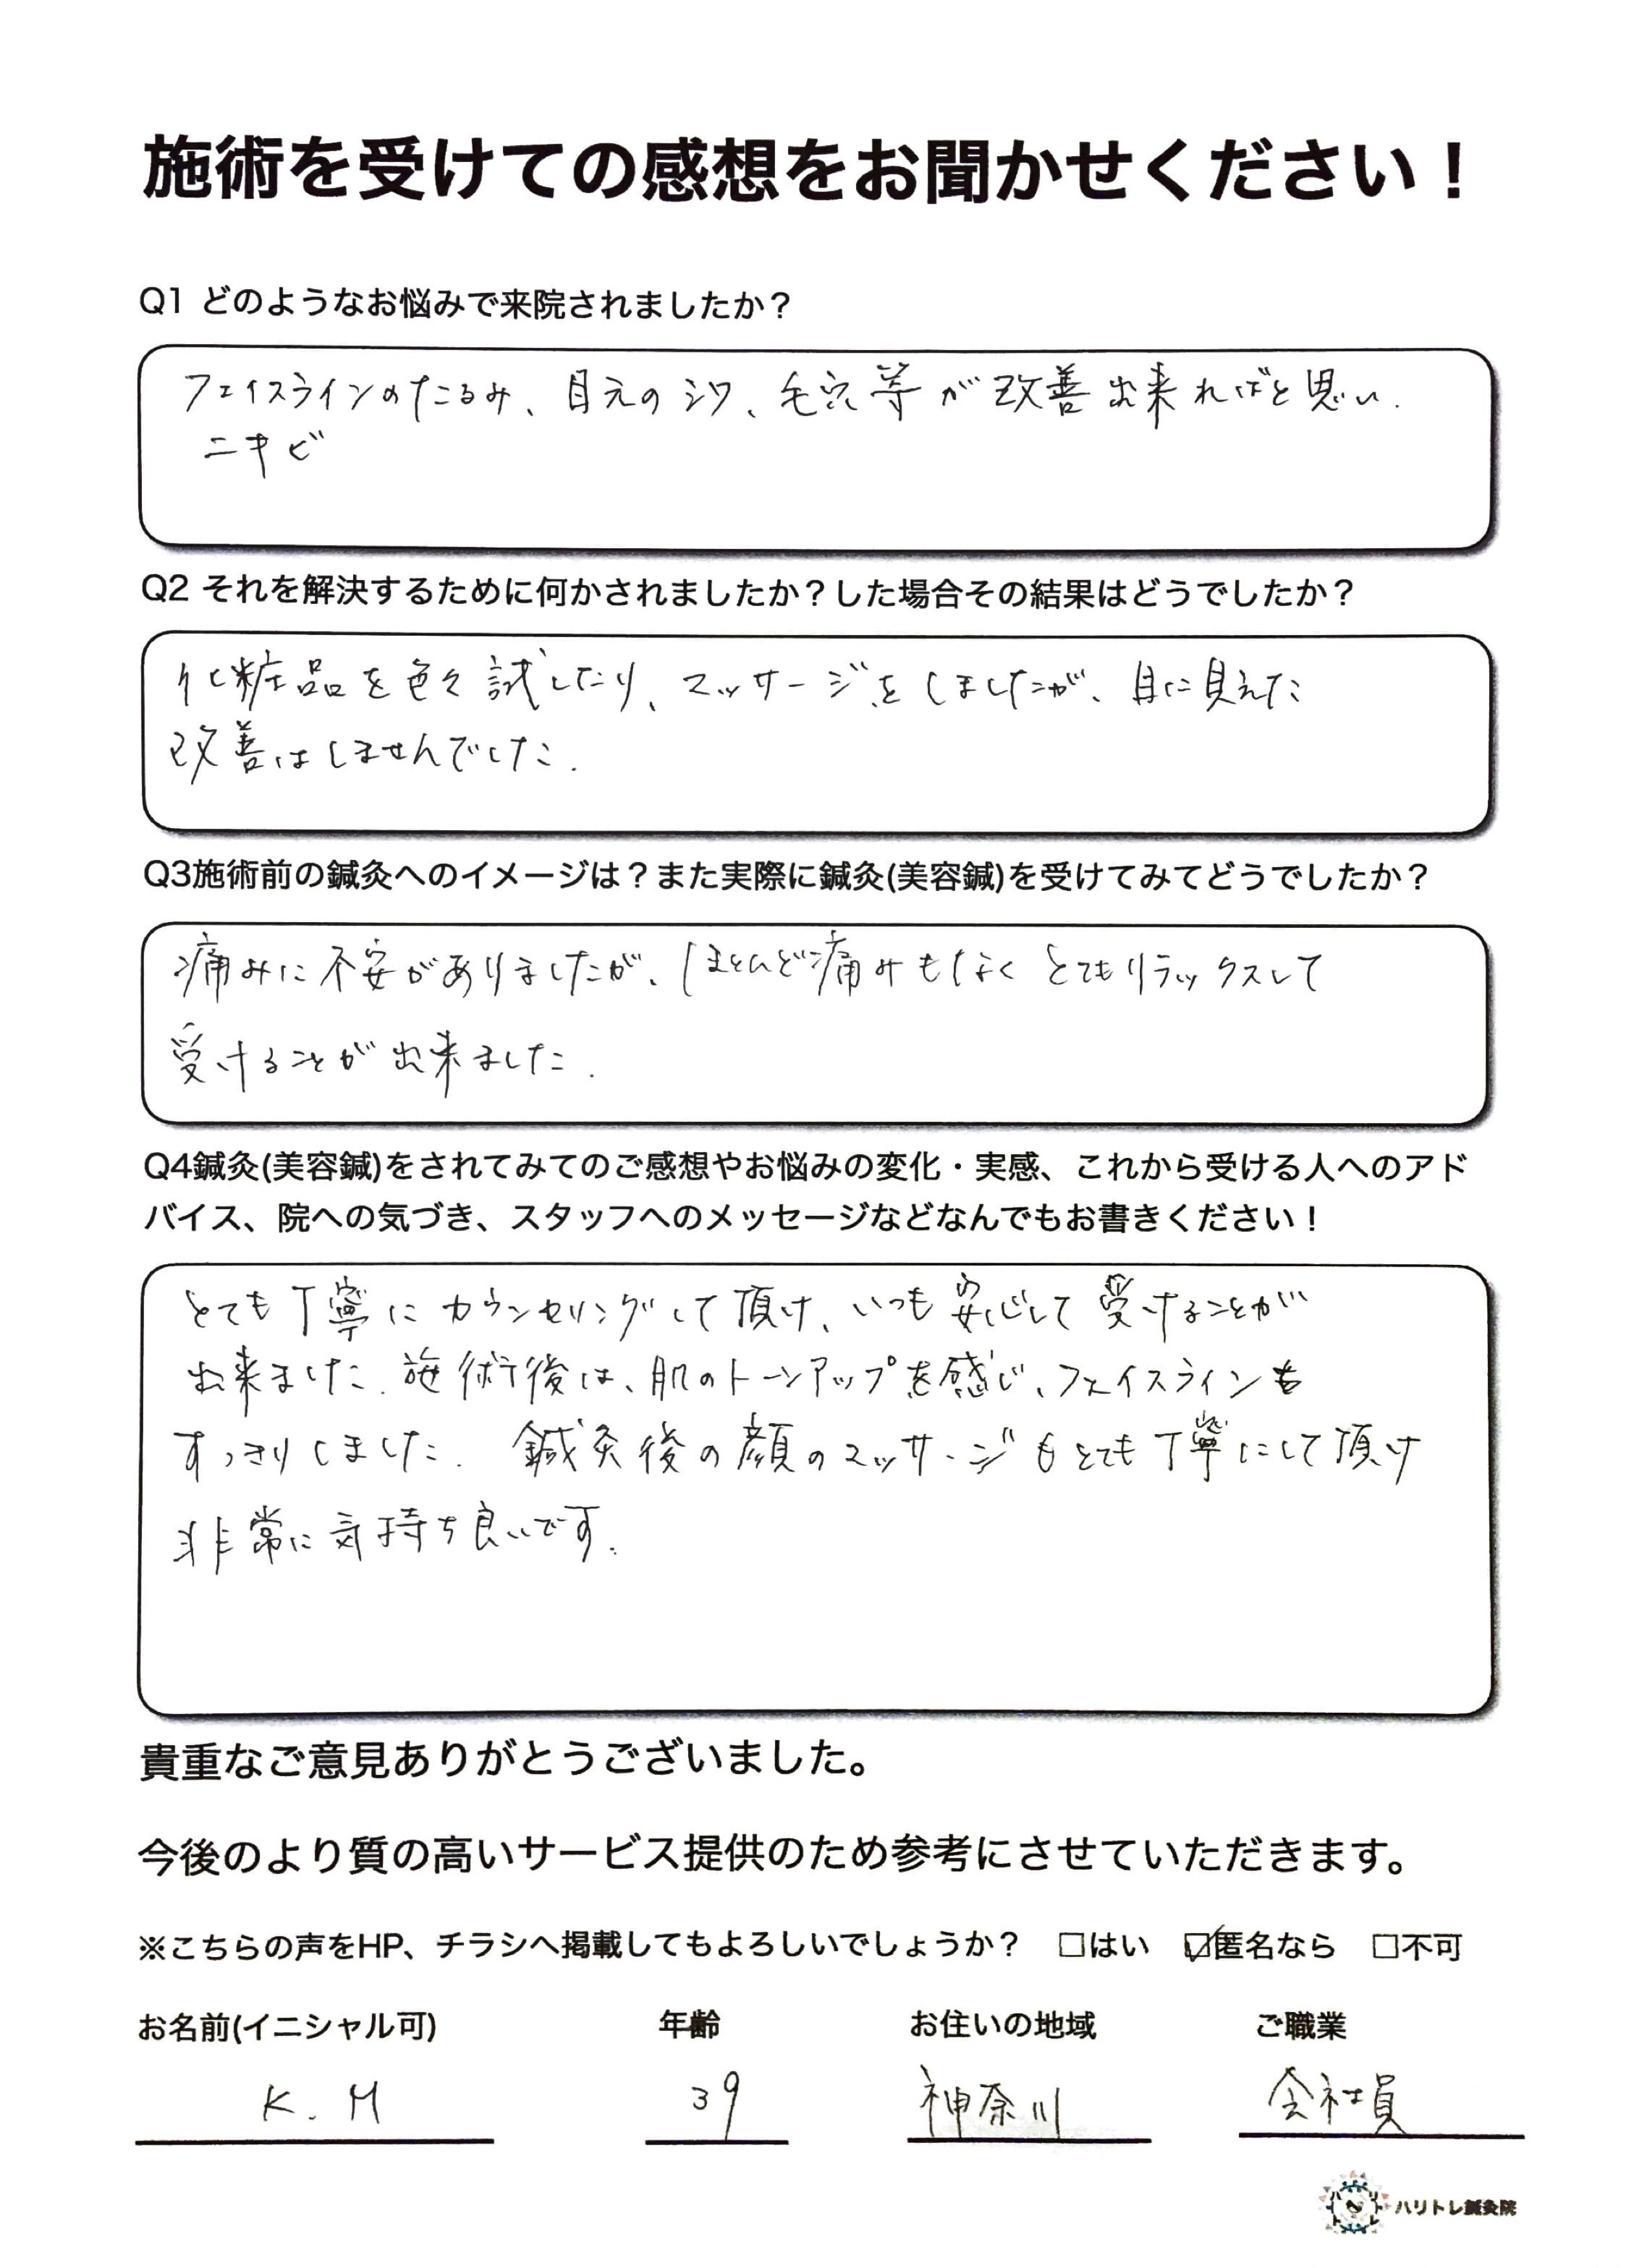 施術を受けての感想をお聞かせください！
Q1 どのようなお悩みで来院されましたか？
フェイスラインのたるみ、目元のシワ、毛穴等が改善出来ればと思い.
ニキビ
Q2 それを解決するために何かされましたか？した場合その結果はどうでしたか？
化粧品を色々試したり、マッサージをしましたが、目に見えた
改善はしませんでした.
Q3施術前の鍼灸へのイメージは？また実際に鍼灸(美容鍼)を受けてみてどうでしたか？
痛みに不安がありましたが、ほとんど痛みもなくとてもリラックスして
受けることが出来ました.
Q4鍼灸(美容鍼)をされてみてのご感想やお悩みの変化・実感、これから受ける人へのアド
バイス、院への気づき、スタッフへのメッセージなどなんでもお書きください！
とても丁寧にカウンセリングして頂け、いつも安心して受けることが
出来ました. 施術後は、肌のトーンアップを感じ、フェイスラインも
すっきりしました. 鍼灸後の顔のマッサージもとても丁寧にして頂け
非常に気持ち良いです.
貴重なご意見ありがとうございました。
今後のより質の高いサービス提供のため参考にさせていただきます。
※こちらの声をHP、チラシへ掲載してもよろしいでしょうか？ □はい ☑匿名なら □不可
お名前(イニシャル可) 年齢 お住いの地域 ご職業
K. M 39 神奈川 会社員
ハリトレ ハリトレ鍼灸院